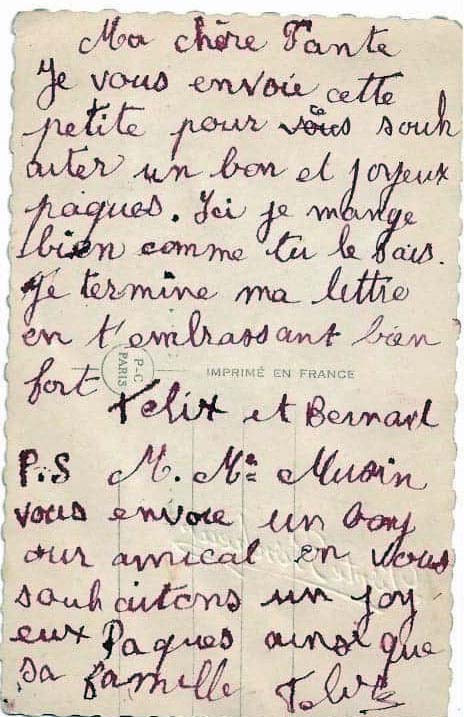 Ma chère Tante
Je vous envoie cette
petite pour vous souh
aiter un bon et joyeux
pâques. Ici je mange
bien comme tu le sais.
Je termine ma lettre
en t'embrassant bien
fort
P-C
PARIS
IMPRIMÉ EN FRANCE
Felix et Bernard
P.S M. Me Musin
vous envoie un bonj
our amical en vous
souhaitons un joy
eux Paques ainsi que
sa famille Felix